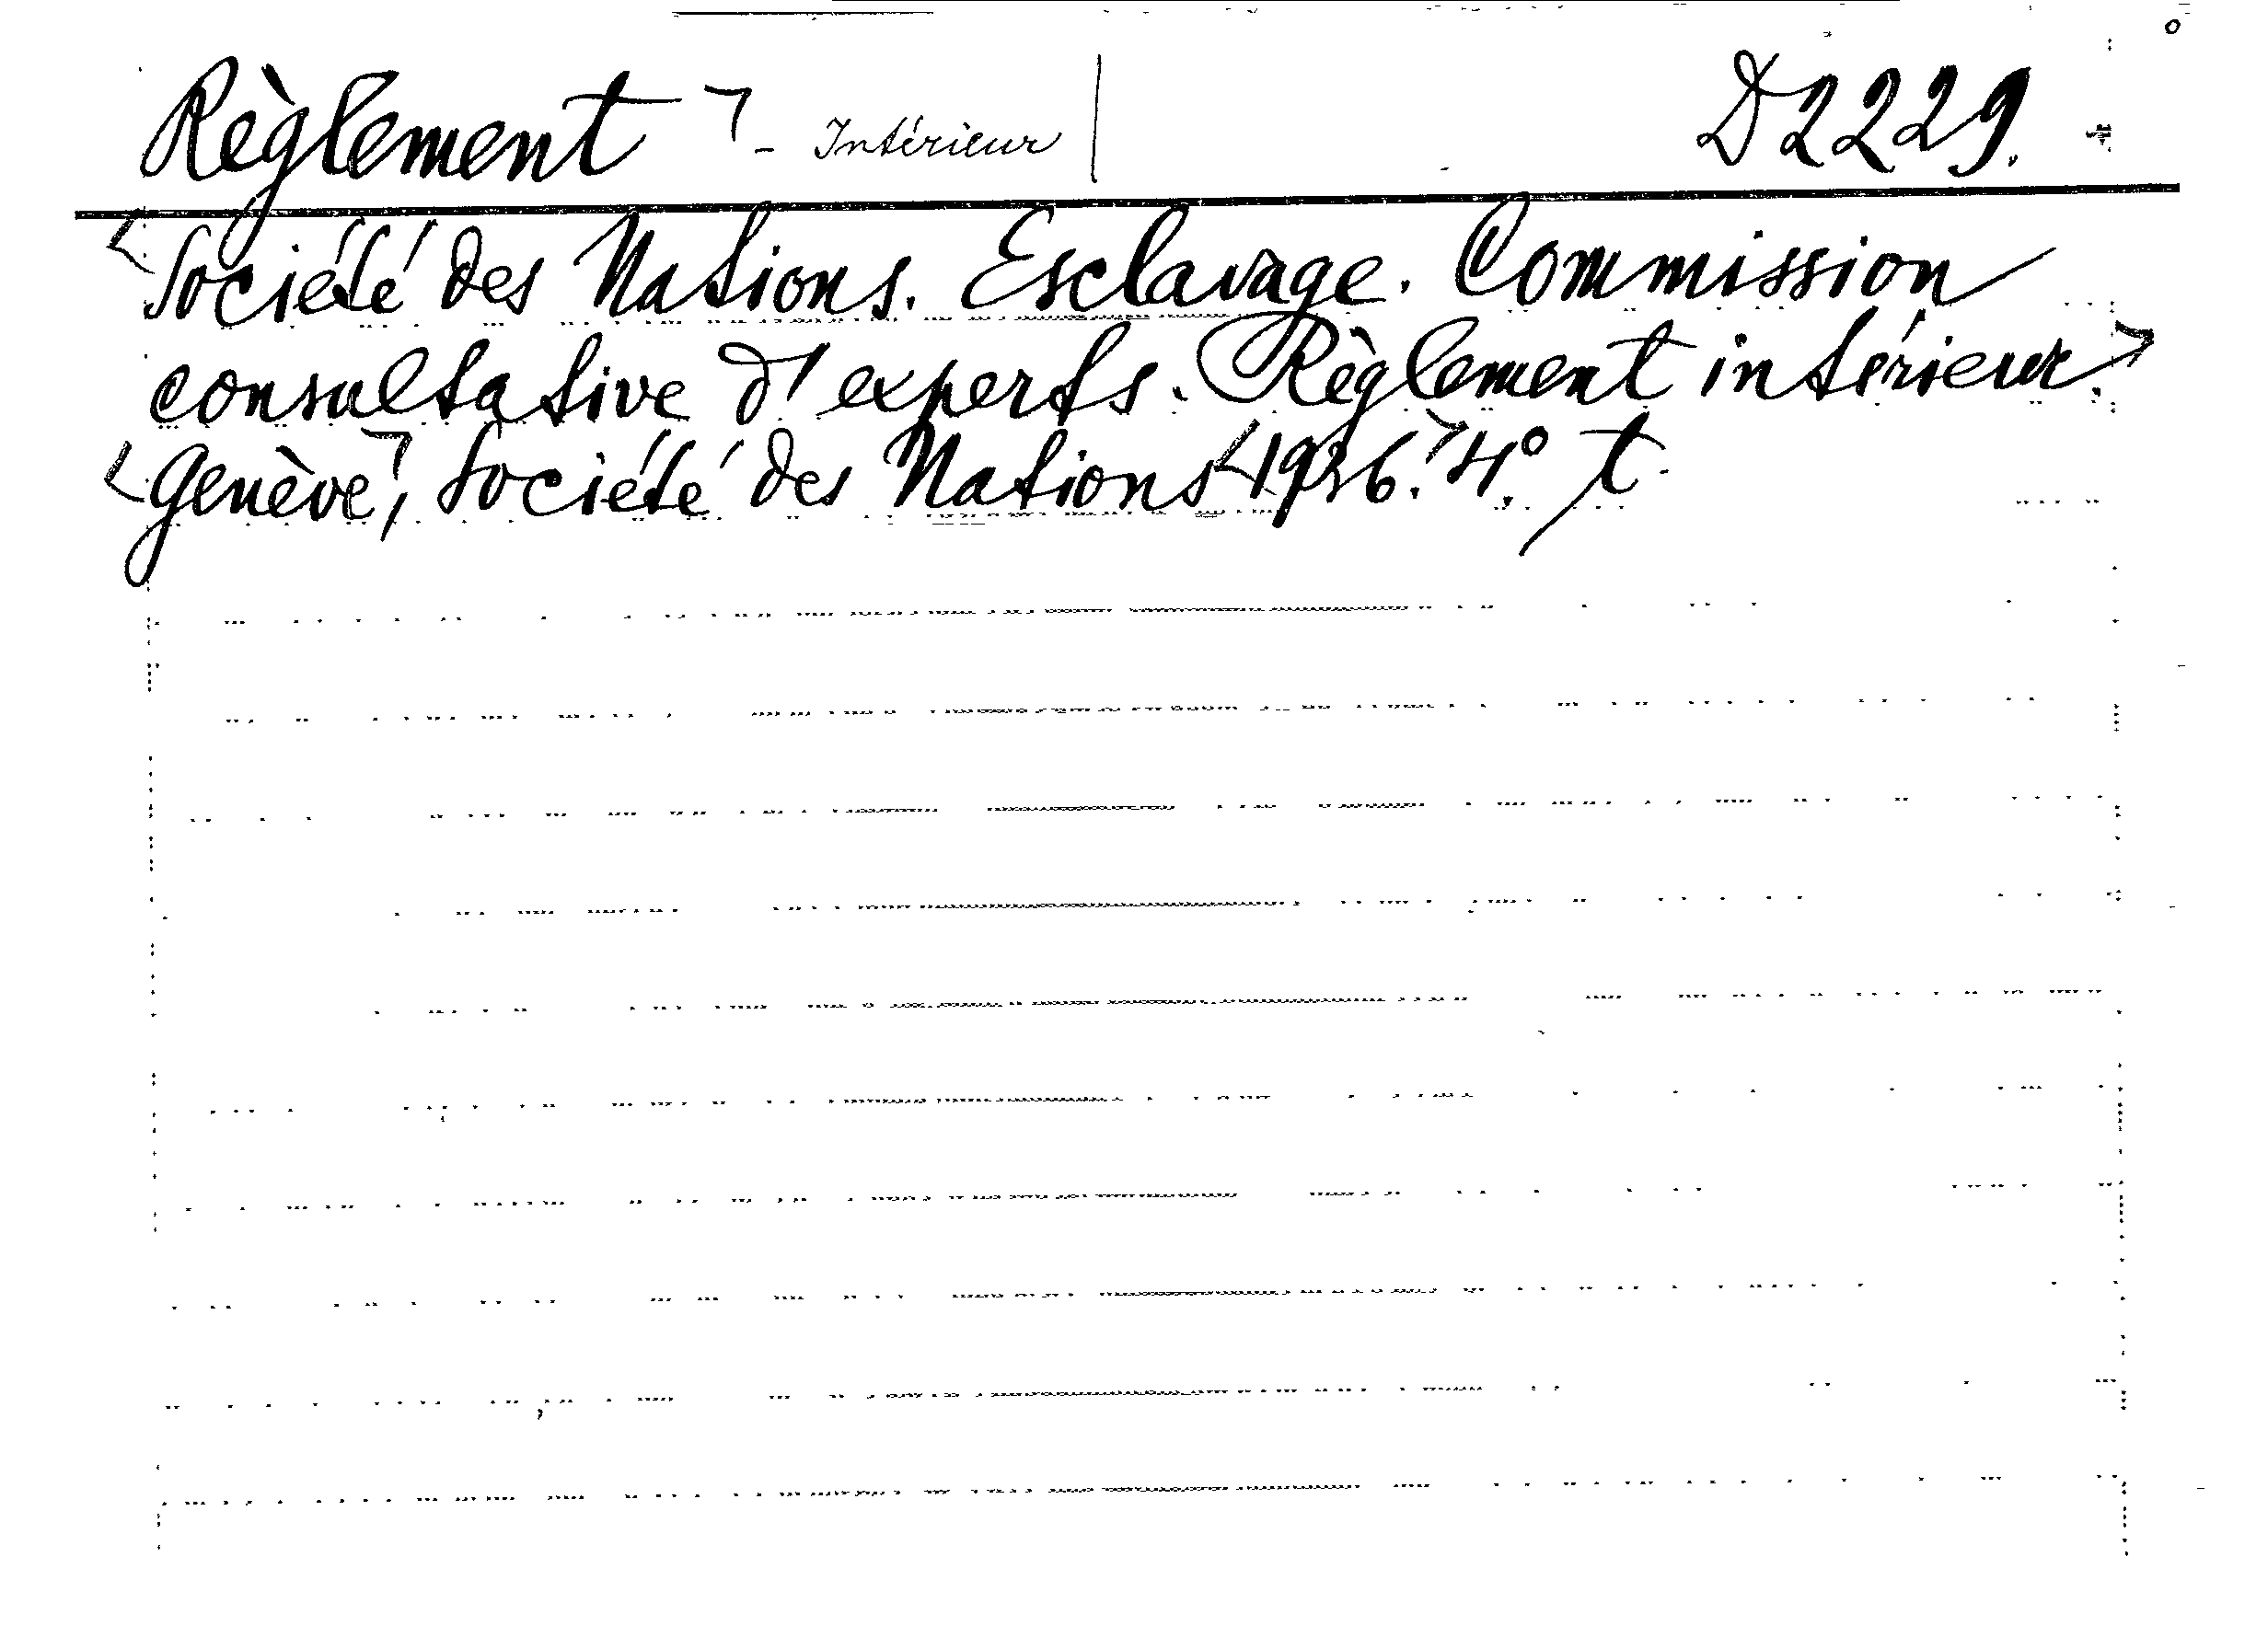 Règlement ¬ - Intérieur | D2229.
<Société des Nations. Esclavage. Commission
consultative d'experts. Règlement intérieur.>
<Genève¬, Société des Nations <1936.> 4°. t.